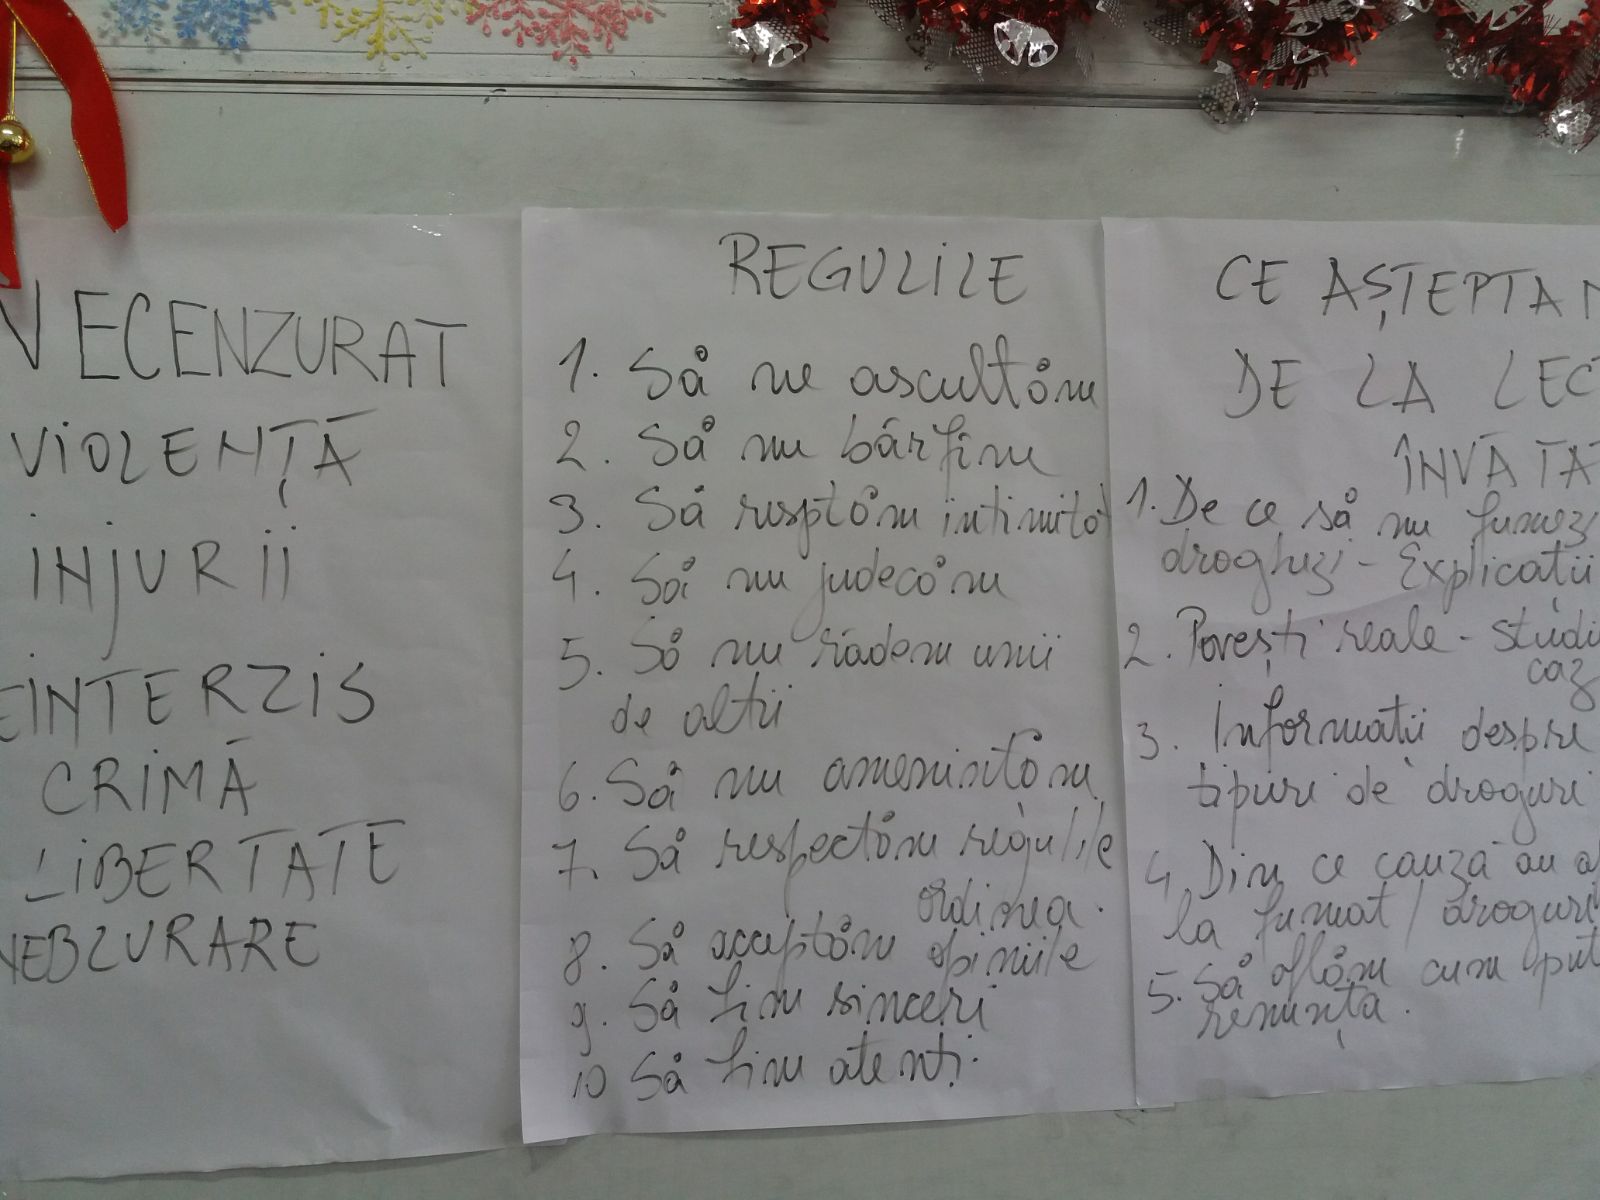 NECENZURAT
VIOLENȚĂ
INJURII
INTERZIS
CRIMĂ
LIBERTATE
REGULILE
1. Să ne ascultăm
2. Să nu bârfim
3. Să resptăm intimităt
4. Să nu judecăm
5. Să nu râdem unii
de altii
6. Să nu amenintăm
7. Să respectăm regulile
ordinea.
8. Să acceptăm opiniile
9. Să fim sinceri
10 Să fim atenți.
CE AȘTEPTAM
DE LA LECT
ÎNVĂTAT
1. De ce să nu fumezi
droghezi - Explicații
2. Povești reale - studi
caz
3. Informatii despre
tipuri de droguri
4. Din ce cauză au a
la fumat / droguri
5. Să aflăm cum put
renunța.